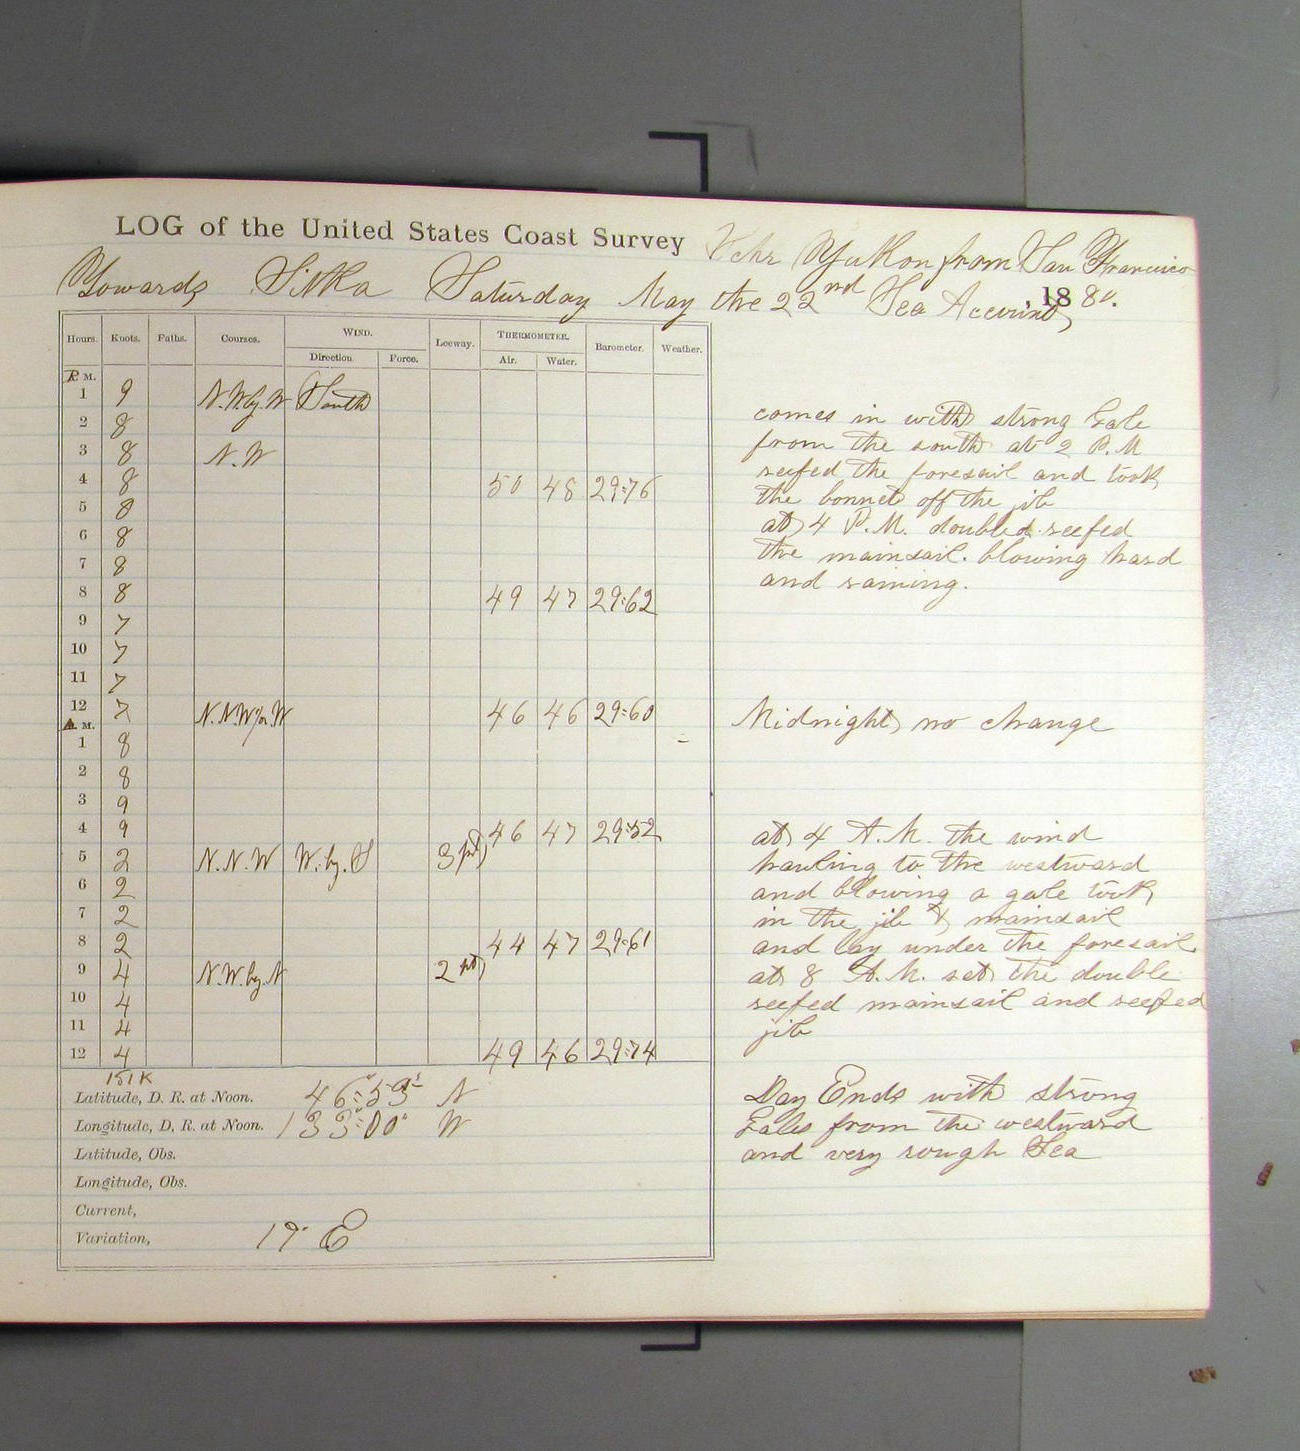 LOG of the United States Coast Survey Schr Yukon from San Francisco
Towards Sitka Saturday May the 22nd Sea Account, 1880.
Hours. Knots. Faths. Courses. WIND. Leeway. THERMOMETER. Barometer. Weather.
Direction. Force. Air. Water.
P. M.
1 9 N.W.by.W South
2 8
3 8 N.W
4 8 50 48 29:76
5 8
6 8
7 8
8 8 49 47 29:62
9 7
10 7
11 7
12 7 N.N.W½W 46 46 29:60
A. M.
1 8
2 8
3 9
4 9 46 47 29:52
5 2 N.N.W W.by.S 3 pt
6 2
7 2
8 2 44 47 29:61
9 4 N.W.by.N 2 pt
10 4
11 4
12 4 49 46 29:74
151 K
Latitude, D. R. at Noon. 46°:53' N
Longitude, D. R. at Noon. 133°:00' W
Latitude, Obs.
Longitude, Obs.
Current,
Variation, 19° E
comes in with strong Gale
from the south at 2 P.M
reefed the foresail and took
the bonnet off the jib
at 4 P.M. doubled reefed
the mainsail. blowing hard
and raining.
Midnight no change
at 4 A.M. the wind
hauling to the westward
and blowing a gale took
in the jib & mainsail
and lay under the foresail
at 8 A.M. set the double
reefed mainsail and reefed
jib
Day Ends with strong
Gales from the westward
and very rough Sea